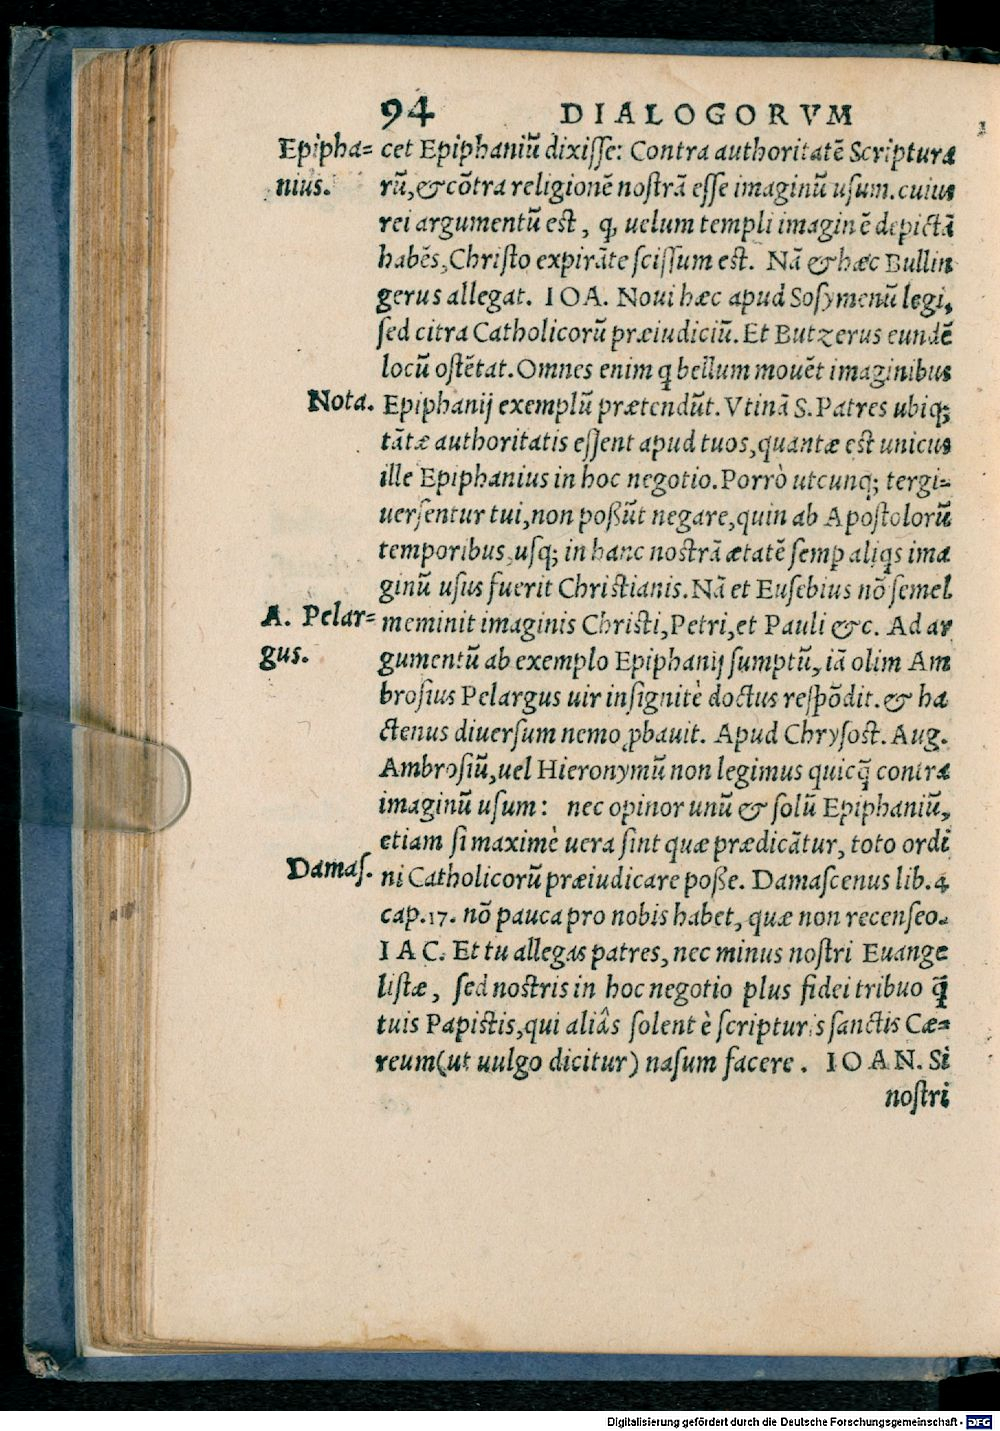 94 DIALOGORVM
Epipha= cet Epiphaniũ dixiſſe: Contra authoritatẽ Scriptura
nius. rũ, & cõtra religionẽ noſtrã eſſe imaginũ uſum. cuius
rei argumentũ est, ꝙ, uelum templi imaginẽ depictã
habẽs, Chriſto expirãte ſciſſum est. Nã & hæc Bullin
gerus allegat. IOA. Noui hæc apud Soſymenũ legi,
ſed citra Catholicorũ præiudiciũ. Et Butzerus eundẽ
locũ oſtẽtat. Omnes enim q̃ bellum mouẽt imaginibus
Nota. Epiphanij exemplũ prætendũt. Vtinã S. Patres ubiq;
tãtæ authoritatis eſſent apud tuos, quantæ est unicus
ille Epiphanius in hoc negotio. Porrò utcunq; tergi=
uerſentur tui, non poßũt negare, quin ab Apoſtolorũ
temporibus, uſq; in hanc noſtrã ætatẽ ſemp aliqs ima
ginũ uſus fuerit Chriſtianis. Nã et Euſebius nõ ſemel
A. Pelar= meminit imaginis Chriſti, Petri, et Pauli &c. Ad ar
gus. gumentũ ab exemplo Epiphanij ſumptũ, iã olim Am
broſius Pelargus uir inſignitè doctus reſpõdit. & ha
ctenus diuerſum nemo ꝓbauit. Apud Chryſost. Aug.
Ambroſiũ, uel Hieronymũ non legimus quicq̃ contra
imaginũ uſum: nec opinor unũ & ſolũ Epiphaniũ,
etiam ſi maximè uera ſint quæ prædicãtur, toto ordi
Damaſ. ni Catholicorũ præiudicare poße. Damaſcenus lib. 4
cap. 17. nõ pauca pro nobis habet, quæ non recenſeo.
IAC. Et tu allegas patres, nec minus noſtri Euange
liſtæ, ſed noſtris in hoc negotio plus fidei tribuo q̃
tuis Papiſtis, qui aliâs ſolent è ſcripturis ſanctis Cæ=
reum (ut uulgo dicitur) naſum facere. IOAN. Si
noſtri
Digitalisierung gefördert durch die Deutsche Forschungsgemeinschaft - DFG